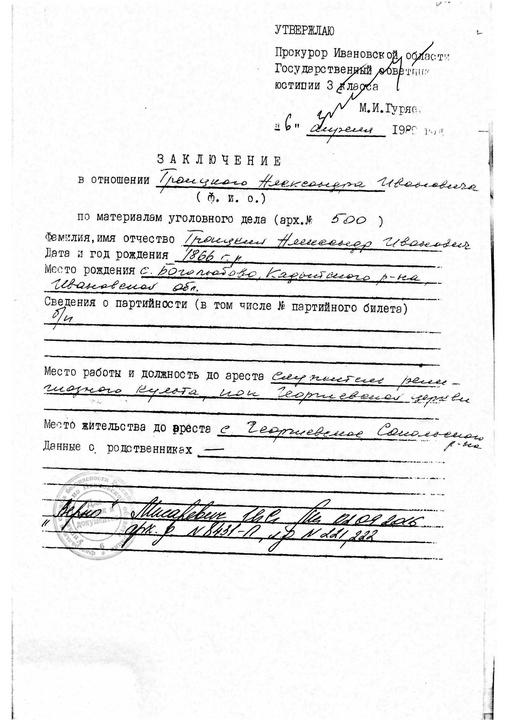 УТВЕРЖДАЮ
Прокурор Ивановской области
Государственный советник
юстиции 3 класса
М.И.Гуряе
"6" апреля 1989 года
ЗАКЛЮЧЕНИЕ
в отношении Троицкого Александра Ивановича
( ф. и. о.)
по материалам уголовного дела (арх.№ 500 )
Фамилия,имя отчество Троицкий Александр Иванович
Дата и год рождения 1866 г.р.
Место рождения с. Боголюбово, Кадыйского р-на,
Ивановской обл.
Сведения о партийности (в том числе № партийного билета)
б/п
Место работы и должность до ареста служитель рели-
гиозного культа, поп Георгиевской церкви
Место жительства до ареста с Георгиевское Сокольского
р-на
Данные о родственниках —
"Верно" 02.09.2016
№ 8431-П, № 221, 222